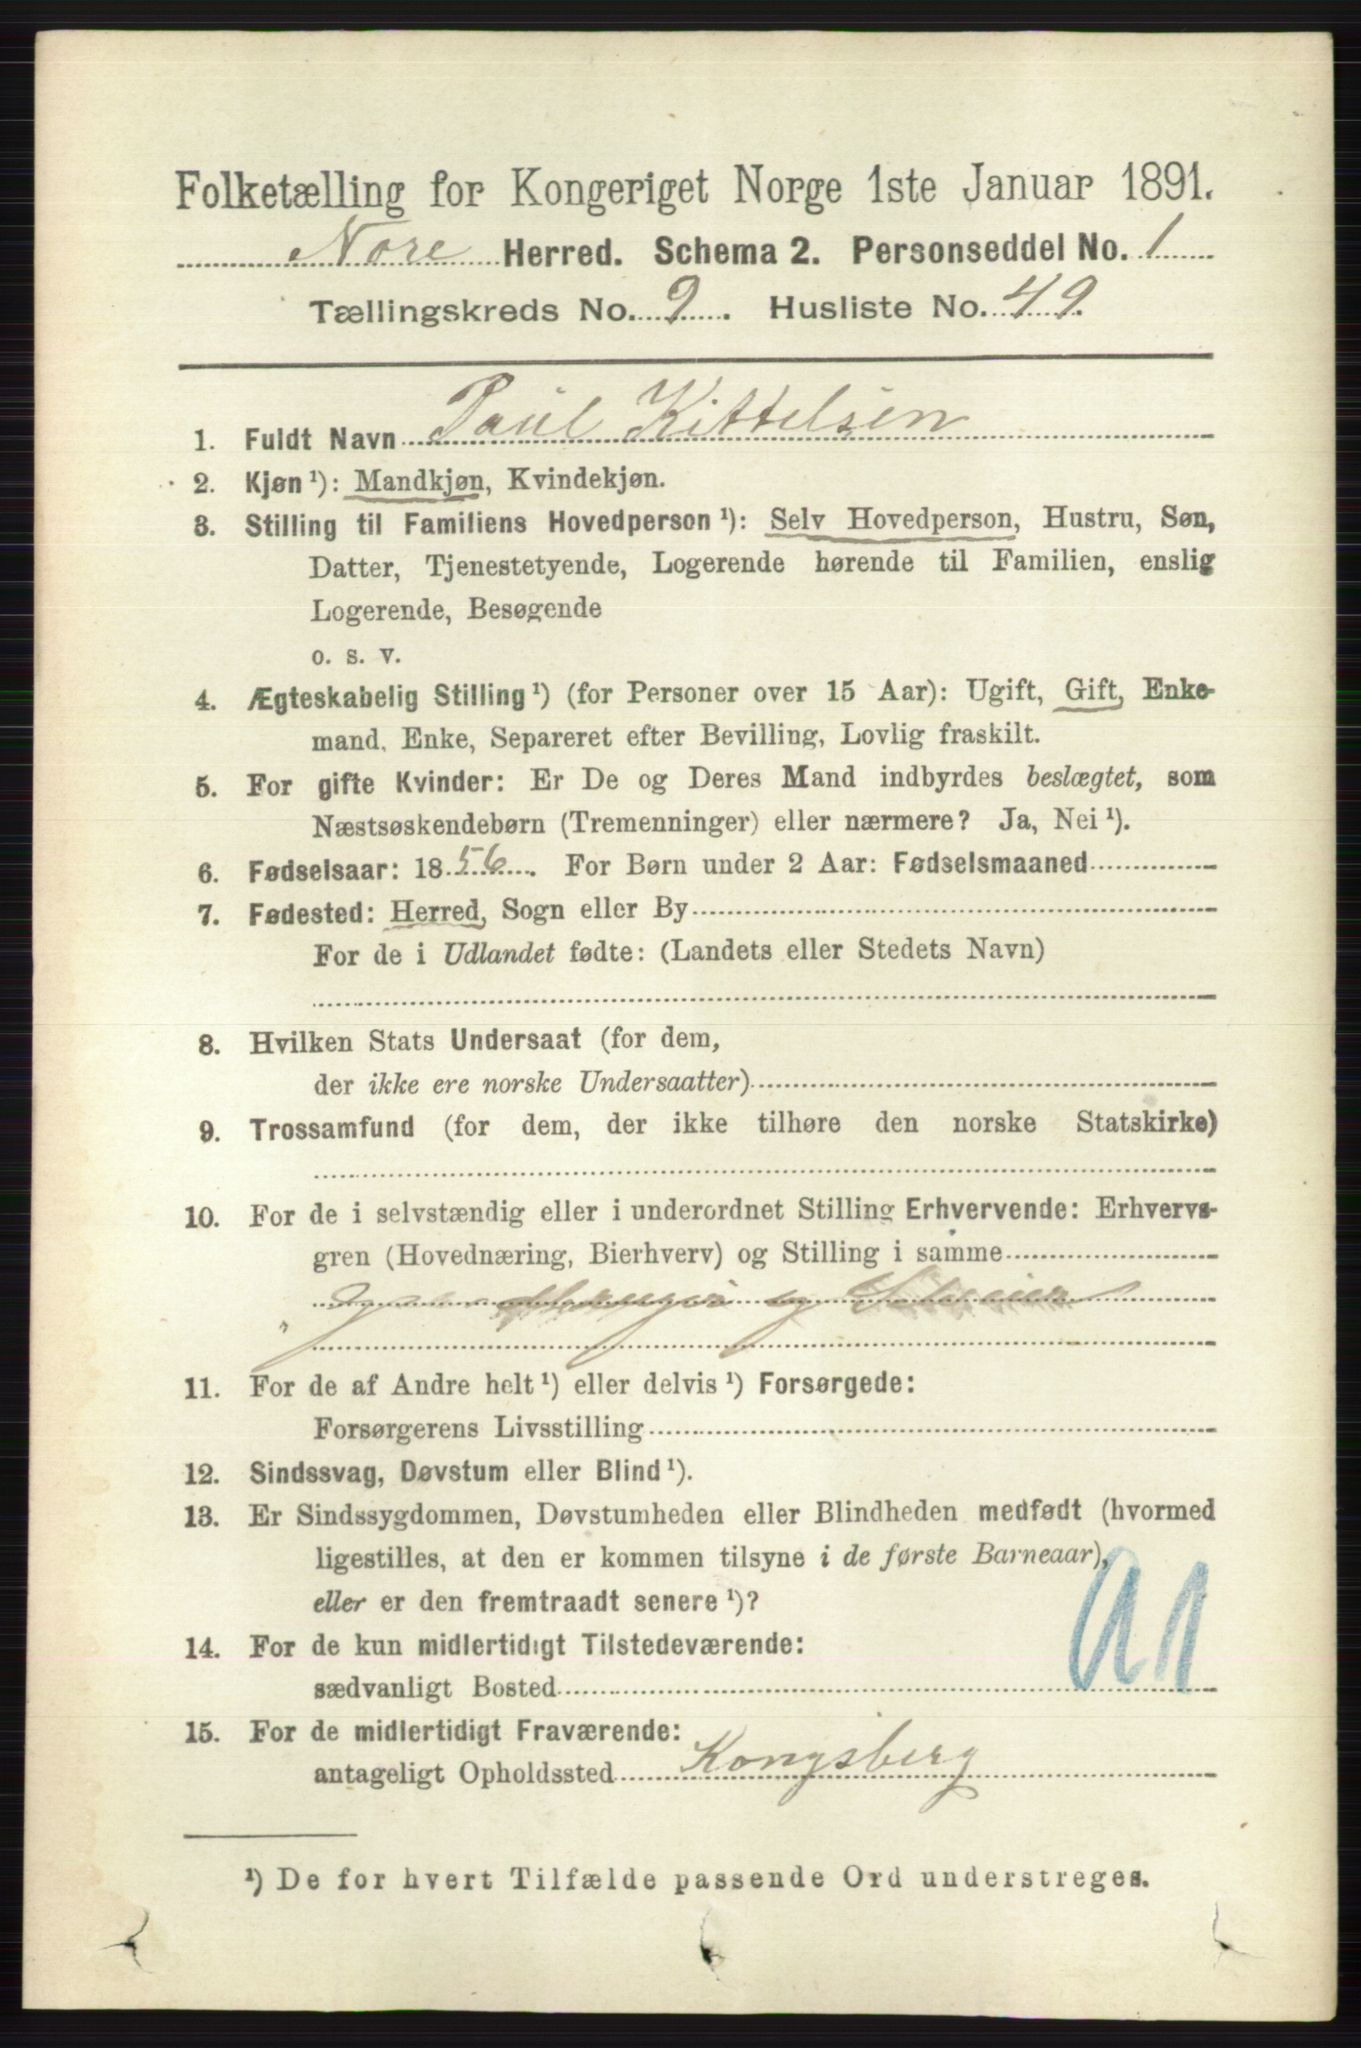 Folketælling for Kongeriget Norge 1ste Januar 1891.
Nore Herred. Schema 2. Personseddel No. 1
Tællingskreds No. 9. Husliste No. 49.
1. Fuldt Navn Paul Kittelsen
2. Kjøn ¹): Mandkjøn, Kvindekjøn.
3. Stilling til Familiens Hovedperson ¹): Selv Hovedperson, Hustru, Søn,
Datter, Tjenestetyende, Logerende hørende til Familien, enslig
Logerende, Besøgende
o. s. v.
4. Ægteskabelig Stilling ¹) (for Personer over 15 Aar): Ugift, Gift, Enke-
mand, Enke, Separeret efter Bevilling, Lovlig fraskilt.
5. For gifte Kvinder: Er De og Deres Mand indbyrdes beslægtet, som
Næstsøskendebørn (Tremenninger) eller nærmere? Ja, Nei ¹).
6. Fødselsaar: 1856. For Børn under 2 Aar: Fødselsmaaned
7. Fødested: Herred, Sogn eller By
For de i Udlandet fødte: (Landets eller Stedets Navn)
8. Hvilken Stats Undersaat (for dem,
der ikke ere norske Undersaatter)
9. Trossamfund (for dem, der ikke tilhøre den norske Statskirke)
10. For de i selvstændig eller i underordnet Stilling Erhvervende: Erhvervs-
gren (Hovednæring, Bierhverv) og Stilling i samme
og
11. For de af Andre helt ¹) eller delvis ¹) Forsørgede:
Forsørgerens Livsstilling
12. Sindssvag, Døvstum eller Blind ¹).
13. Er Sindssygdommen, Døvstumheden eller Blindheden medfødt (hvormed
ligestilles, at den er kommen tilsyne i de første Barneaar),
eller er den fremtraadt senere ¹)?
14. For de kun midlertidigt Tilstedeværende:
sædvanligt Bosted
15. For de midlertidigt Fraværende:
antageligt Opholdssted Kongsberg
¹) De for hvert Tilfælde passende Ord understreges.